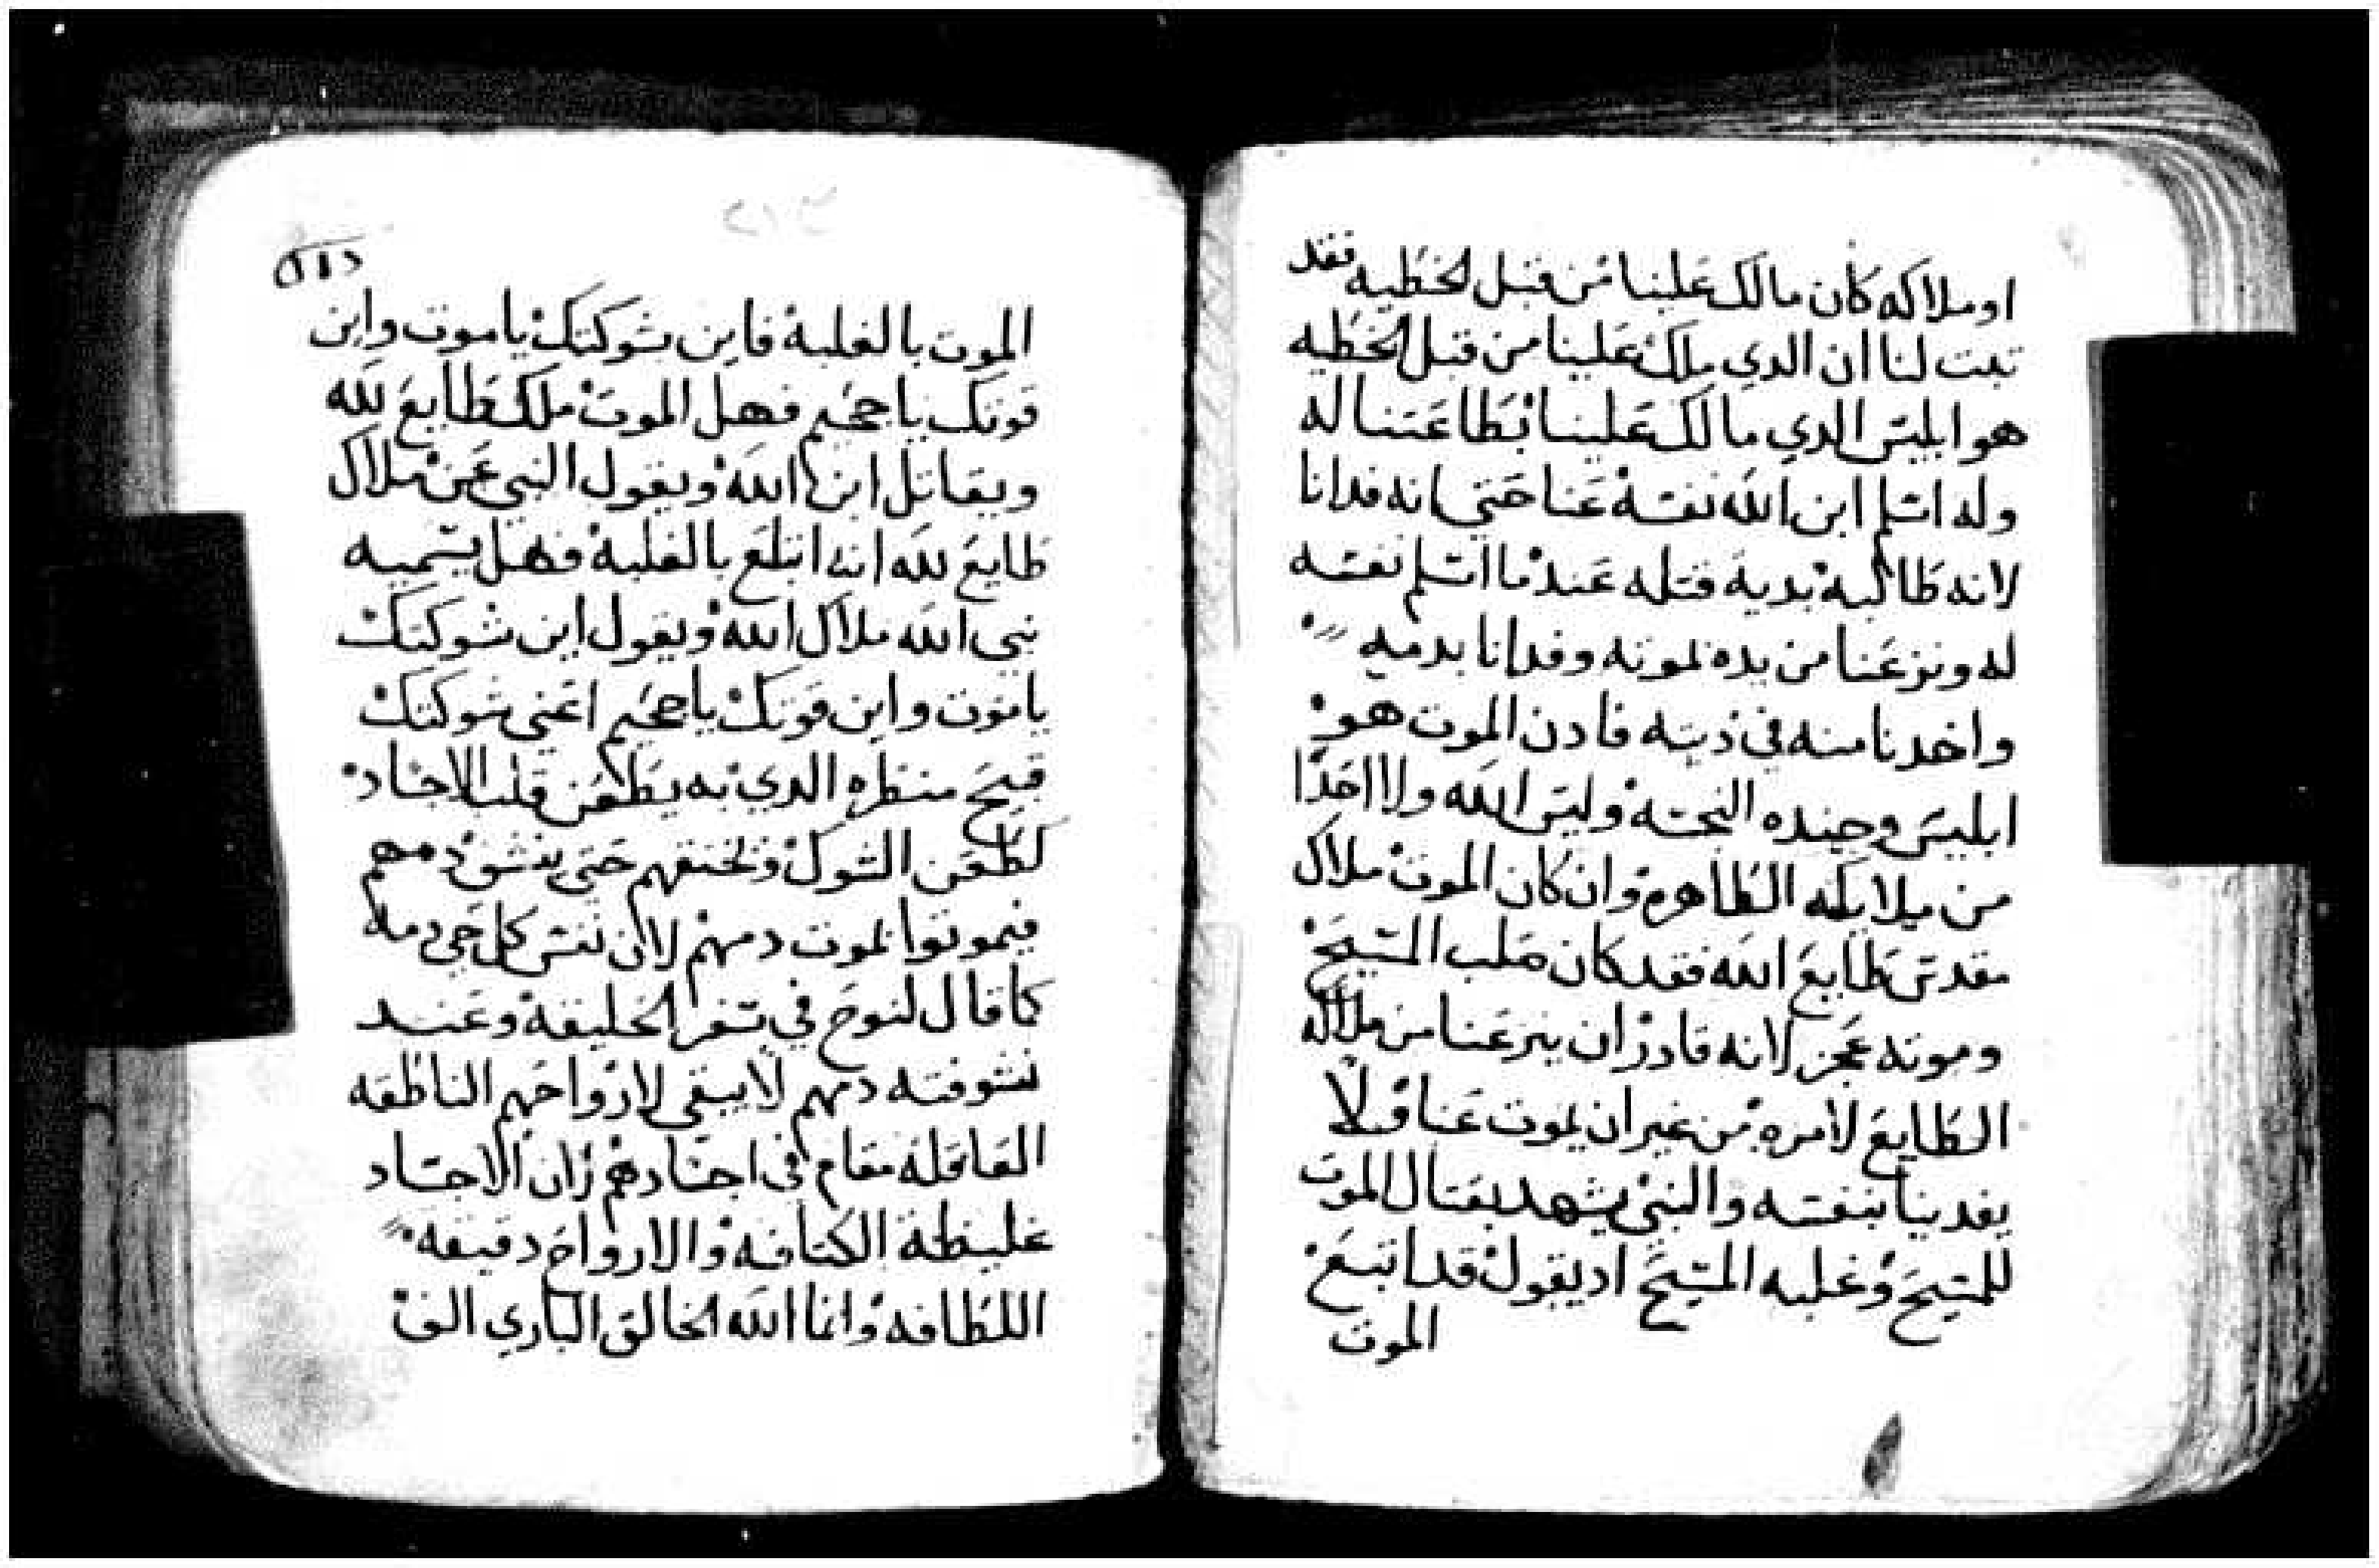 او ملاكه كان مالك علينا من قبل الخطيه فقد
تبت لنا ان الدي ملك علينا من قبل الخطيه
هو ابليس الدي مالك علينا بطاعتنا له
وله اسلم ابن الله نفسه عنا حتي انه فدانا
لانه طالبه بدية قتله عندما اسلم نفسه
له ونزعنا من يده بموته وفدانا بدميه
واخدنا منه في ديته فادن الموت هو
ابليس وجنده النجسه وليس الله ولا احدا
من ملايكته الطاهره وان كان الموت ملاك
مقدس طايع الله فقد كان صلب المسيح
وموته عجز لانه قادر ان ينزعنا من ملاكه
الطايع لامره من غير ان يموت عنا ولا
يفدينا بنفسه والنبي يشهد بقتال الموت
للمسيح وغلبه المسيح اد يقول قد ابتبع
الموت
الموت بالغلبة فاين شوكتك يا موت واين
قوتك يا جحيم فهل الموت ملك طايع لله
ويقاتل ابن الله ويقول النبي عن ملاك
طايع لله انه ابتلع بالغلبة فهل يسميه
نبي الله ملاك الله ويقول اين شوكتك
يا موت واين قوتك يا جحيم اعني شوكتك
قبيح منظره الدي به يطعن قلب الاجساد
كطعن الشوك وتخنقهم حتي ينشق دمهم
فيموتوا بموت دمهم لان نفس كل حي دمه
كما قال لنوح في سفر الخليقة وعند
نشوفته دمهم لا يبقي لارواحهم الناطقه
العاقله مقام في اجسادهم لان الاجساد
غليظة الكتافه والارواح دقيقه
اللطافه وانما الله الخالق الباري الف